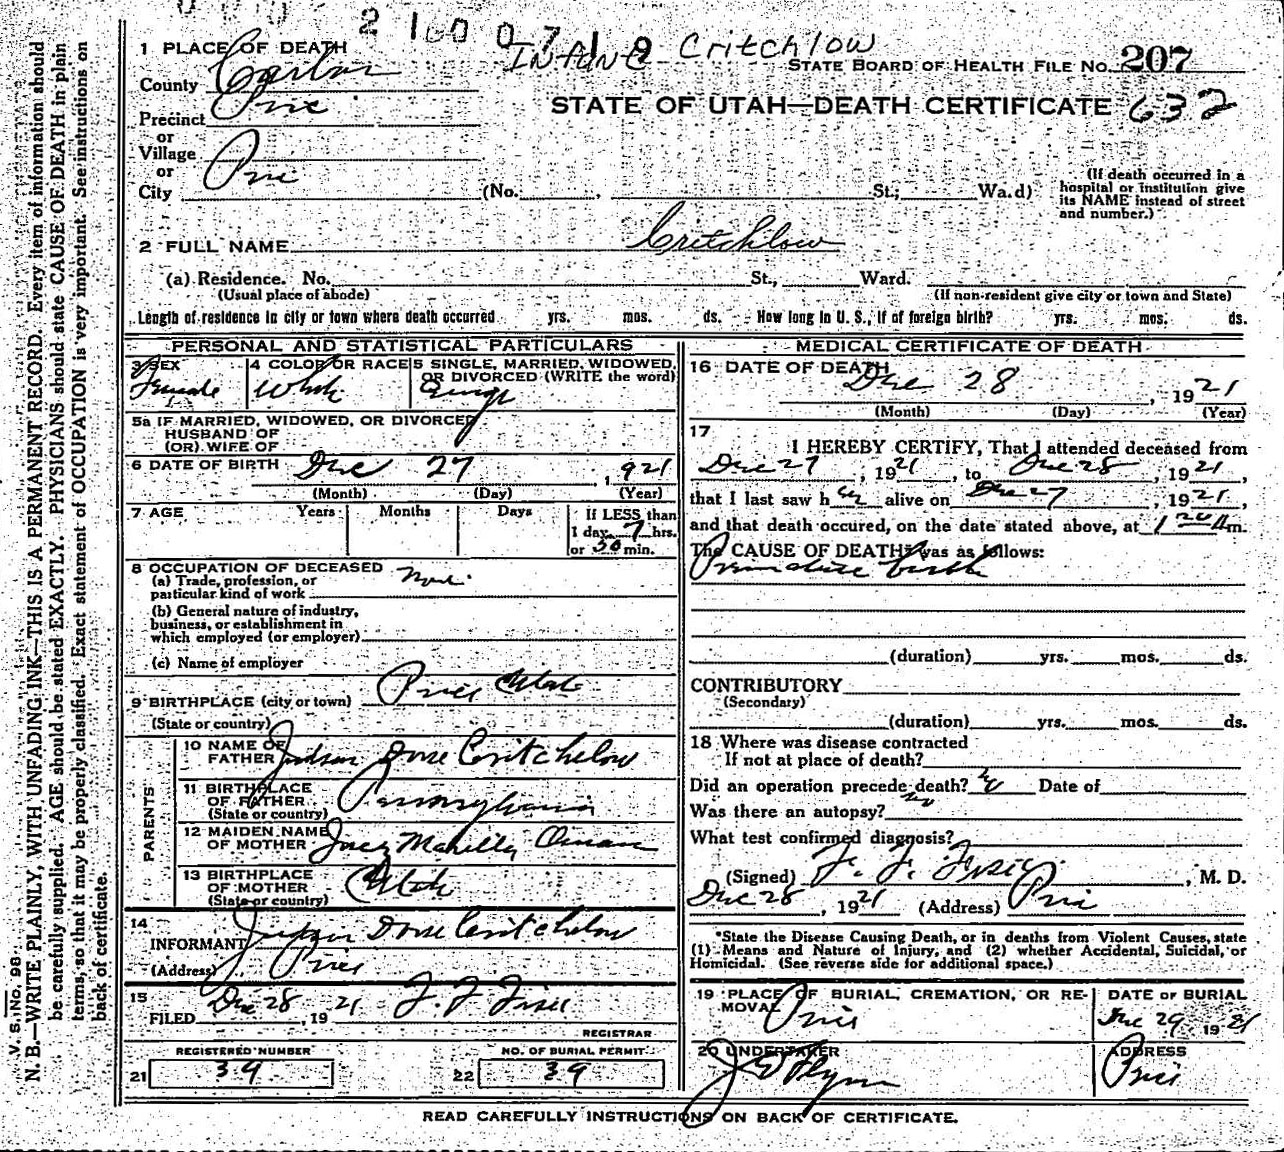 2 1 0 0 7 1 9
Infant Critchlow
1 PLACE OF DEATH
STATE BOARD OF HEALTH FILE NO. 207
County Carbon
STATE OF UTAH—DEATH CERTIFICATE 632
Precinct Price
or
Village
or
City Price (No. , St.; Wa.d)
(If death occurred in a
hospital or institution give
its NAME instead of street
and number.)
2 FULL NAME Critchlow
(a) Residence. No. St., Ward.
(Usual place of abode) (If non-resident give city or town and State)
Length of residence in city or town where death occurred yrs. mos. ds. How long in U. S., if of foreign birth? yrs. mos. ds.
PERSONAL AND STATISTICAL PARTICULARS
3 SEX Female
4 COLOR OR RACE White
5 SINGLE, MARRIED, WIDOWED,
OR DIVORCED (WRITE the word)
Single
5a IF MARRIED, WIDOWED, OR DIVORCED
HUSBAND OF
(OR) WIFE OF
6 DATE OF BIRTH Dec 27, 1921
(Month) (Day) (Year)
7 AGE Years Months Days
If LESS than
1 day, 7 hrs.
or 30 min.
8 OCCUPATION OF DECEASED
(a) Trade, profession, or
particular kind of work
(b) General nature of industry,
business, or establishment in
which employed (or employer)
(c) Name of employer
9 BIRTHPLACE (city or town) Price Utah
(State or country)
PARENTS
10 NAME OF
FATHER Judson Dove Critchelow
11 BIRTHPLACE
OF FATHER Pennsylvania
(State or country)
12 MAIDEN NAME
OF MOTHER Marilla
13 BIRTHPLACE
OF MOTHER Utah
(State or country)
14
INFORMANT Judson Dove Critchelow
(Address) Price
15
FILED Dec 28, 1921 F. F. Fisk
REGISTRAR
REGISTERED NUMBER
21 39
NO. OF BURIAL PERMIT
22 39
MEDICAL CERTIFICATE OF DEATH
16 DATE OF DEATH
Dec 28, 1921
(Month) (Day) (Year)
17
I HEREBY CERTIFY, That I attended deceased from
Dec 27, 1921, to Dec 28, 1921,
that I last saw her alive on Dec 27, 1921,
and that death occured, on the date stated above, at 1 20 Am.
The CAUSE OF DEATH* was as follows:
Premature birth
(duration) yrs. mos. ds.
CONTRIBUTORY
(Secondary)
(duration) yrs. mos. ds.
18 Where was disease contracted
If not at place of death?
Did an operation precede death? no Date of
Was there an autopsy? no
What test confirmed diagnosis?
(Signed) F. F. Fisk, M. D.
Dec 28, 1921 (Address) Price
*State the Disease Causing Death, or in deaths from Violent Causes, state
(1) Means and Nature of Injury, and (2) whether Accidental, Suicidal, or
Homicidal. (See reverse side for additional space.)
19 PLACE OF BURIAL, CREMATION, OR RE-
MOVAL Price
DATE OF BURIAL
Dec 29 1921
20 UNDERTAKER
J E Flynn
ADDRESS
Price
READ CAREFULLY INSTRUCTIONS ON BACK OF CERTIFICATE.
V. S. No. 98
N. B.—WRITE PLAINLY, WITH UNFADING INK—THIS IS A PERMANENT RECORD. Every item of information should
be carefully supplied. AGE should be stated EXACTLY. PHYSICIANS should state CAUSE OF DEATH in plain
terms, so that it may be properly classified. Exact statement of OCCUPATION is very important. See instructions on
back of certificate.